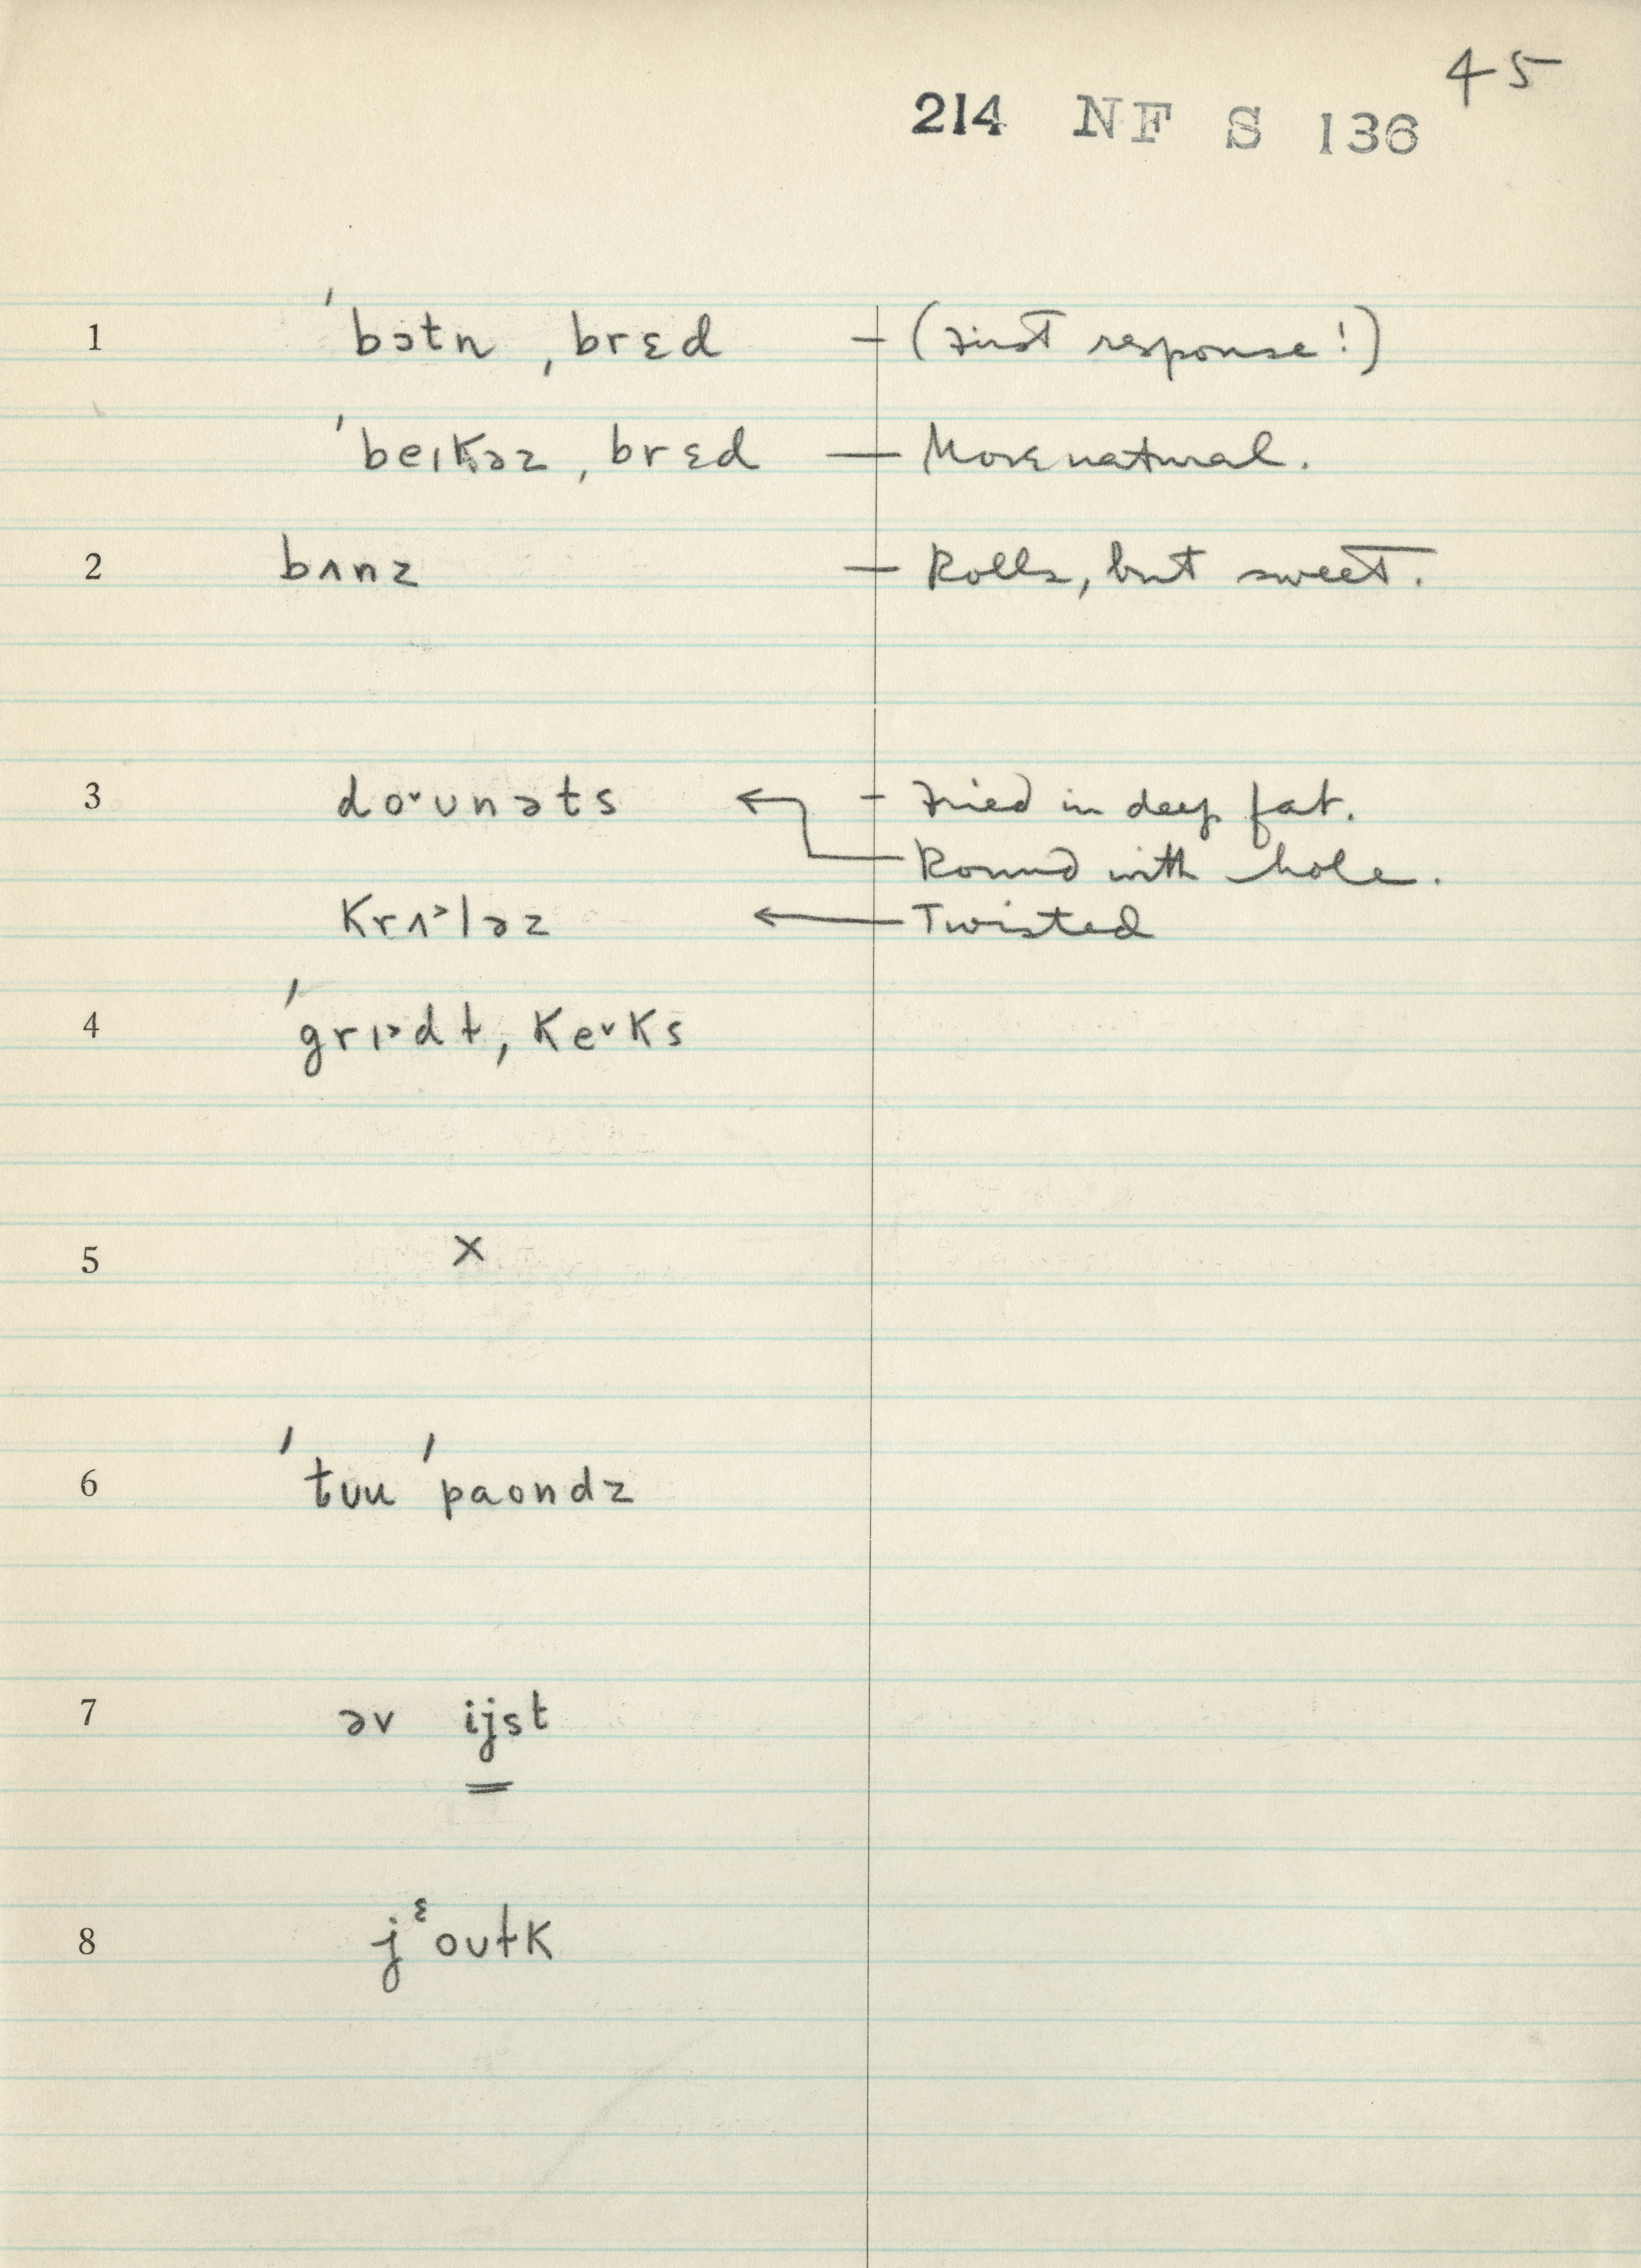 45
214 NF S 136
1 ˈbɔtn ˌbrɛd — (First response!)
ˈbeɪkəz ˌbrɛd — More natural.
2 bʌnz — Rolls, but sweet.
3 do˅ʊnəts ← — Fried in deep fat.
Round with hole.
krʌ˃ləz ← Twisted
4 ˈgrɪ˃dɫ ˌke˅ks
5 ×
6 ˈtʊu ˈpaʊndz
7 əv ijst
8 jᵋoʊɫk